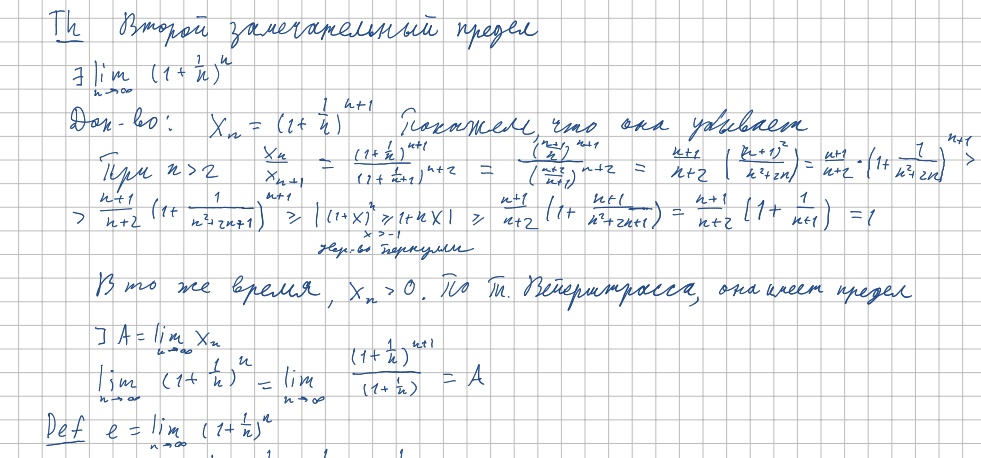 Th Второй замечательный предел
∃ lim_{n→∞} (1 + 1/n)^n
Док-во: X_n = (1 + 1/n)^{n+1} Покажем, что она убывает
При n > 2 X_n/X_{n+1} = (1 + 1/n)^{n+1}/(1 + 1/(n+1))^{n+2} = ((n+1)/n)^{n+1}/((n+2)/(n+1))^{n+2} = (n+1)/(n+2) ((n+1)^2/(n^2+2n)) = (n+1)/(n+2) · (1 + 1/(n^2+2n))^{n+1} >
> (n+1)/(n+2) (1 + 1/(n^2+2n+1))^{n+1} ≥ |(1+x)^n ≥ 1+nx| ≥ (n+1)/(n+2) (1 + (n+1)/(n^2+2n+1)) = (n+1)/(n+2) (1 + 1/(n+1)) = 1
x > -1
Нер-во Бернулли
В то же время, X_n > 0. По Th. Вейерштрасса, она имеет предел
∃ A = lim_{n→∞} X_n
lim_{n→∞} (1 + 1/n)^n = lim_{n→∞} (1 + 1/n)^{n+1}/(1 + 1/n) = A
Def e = lim_{n→∞} (1 + 1/n)^n